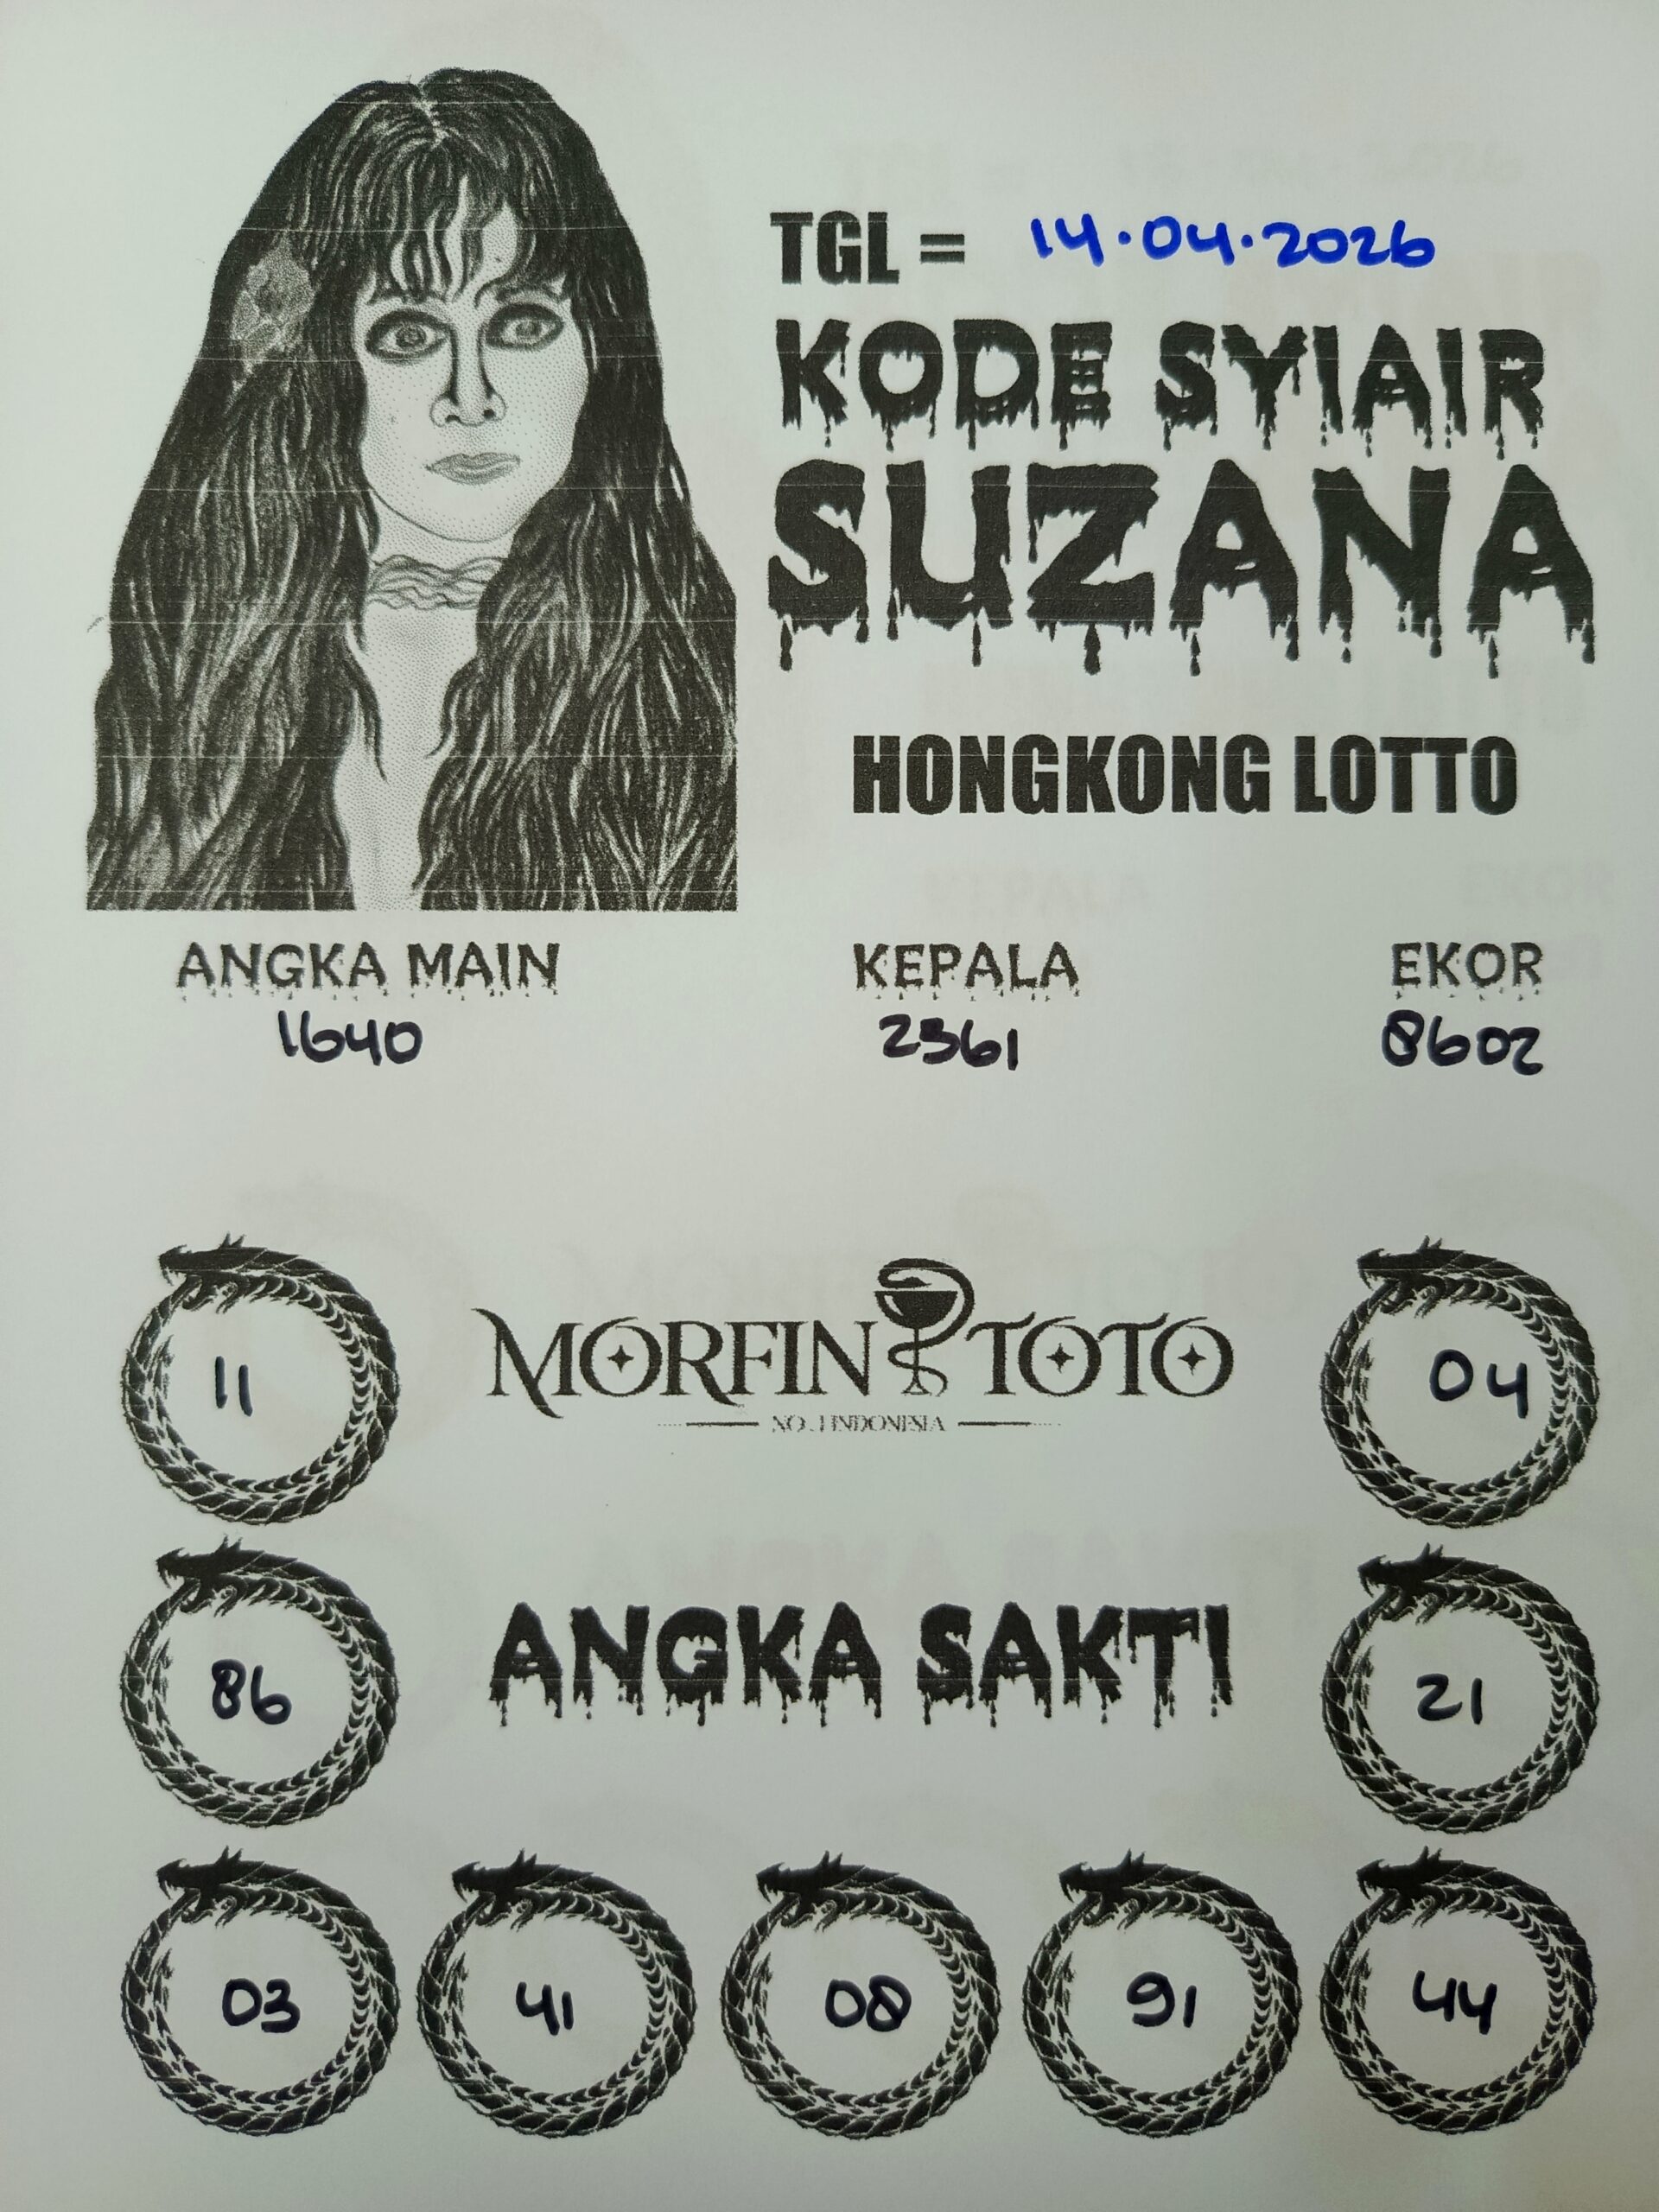 TGL = 14.04.2026
KODE SYIAIR
SUZANA
HONGKONG LOTTO
ANGKA MAIN KEPALA EKOR
1640 2361 8602
11 MORFIN TOTO 04
NO.1 INDONESIA
86 ANGKA SAKTI 21
03 41 08 91 44